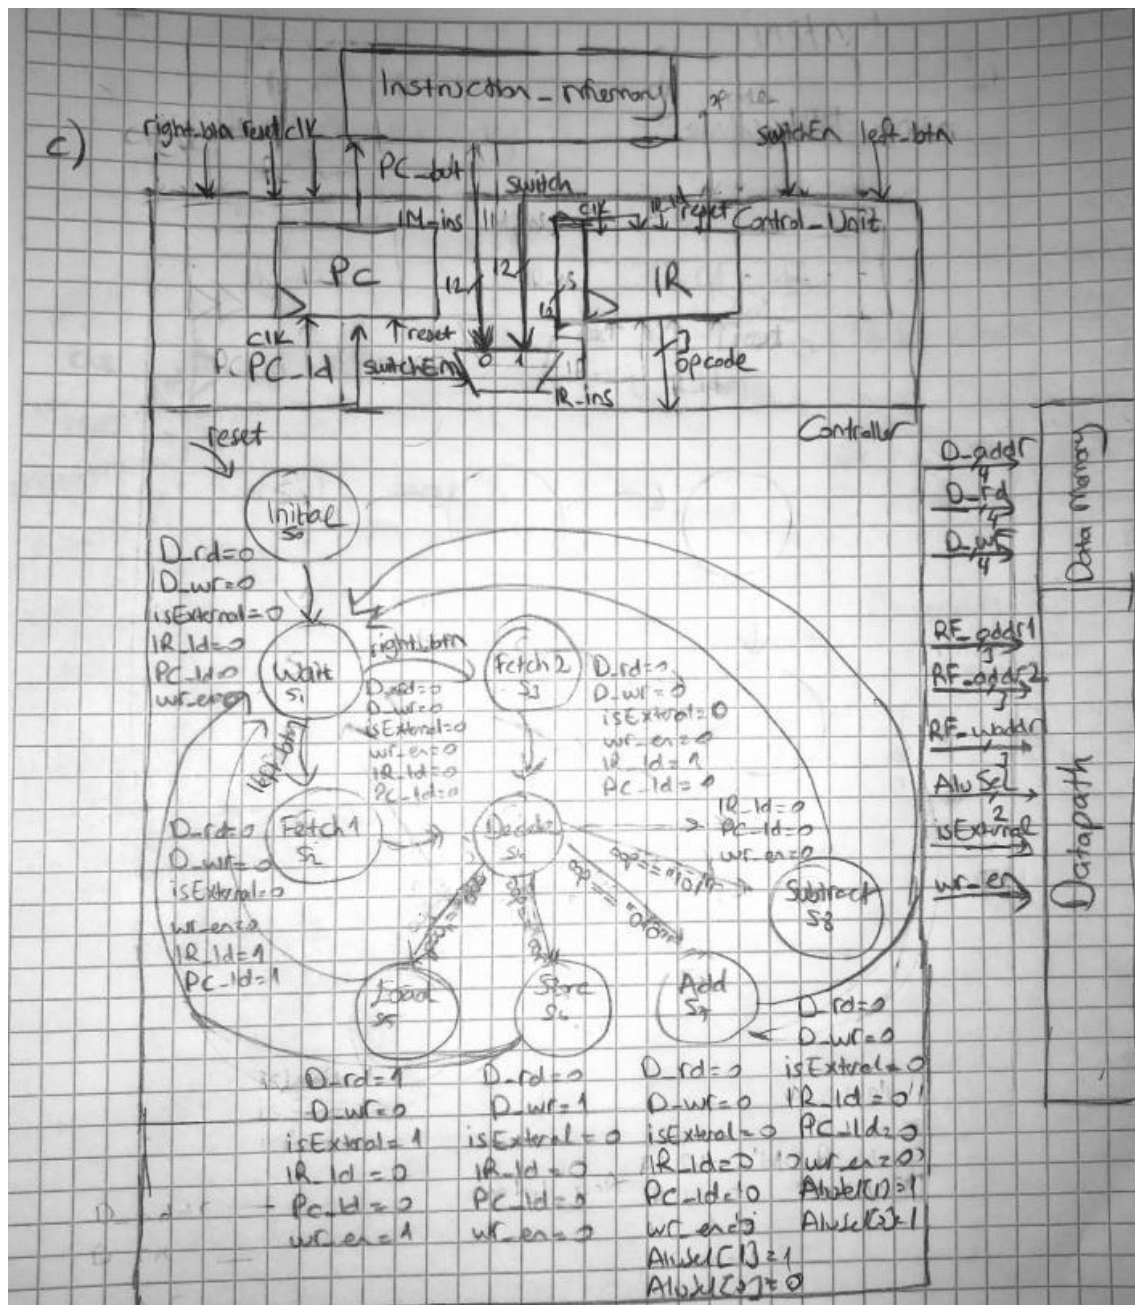 c)
Instruction_Memory
right_btn reset clk
switchEn left_btn
PC_out
switch
IM_ins
clk
IR_ld
reset
Control_Unit
PC
12
12
IR
clk
reset
PC_ld
switchEn
0 1
IR_ins
3
opcode
Controller
reset
Initial
S0
D_rd=0
D_wr=0
isExternal=0
IR_ld=0
PC_ld=0
wr_en=0
Wait
S1
right_btn
Fetch2
S3
D_rd=0
D_wr=0
isExternal=0
wr_en=0
IR_ld=0
PC_ld=0
D_rd=0
D_wr=0
isExteral=0
wr_en=0
IR_ld=1
PC_ld=0
left_btn
Fetch1
S2
D_rd=0
D_wr=0
isExteral=0
wr_en=0
IR_ld=1
PC_ld=1
Decode
S4
IR_ld=0
PC_ld=0
wr_en=0
op=="101"
Subtract
S8
Load
S5
Store
S6
Add
S7
D_rd=1
D_wr=0
isExteral=1
IR_ld=0
Pc_ld=0
wr_en=1
D_rd=0
D_wr=1
isExteral=0
IR_ld=0
PC_ld=0
wr_en=0
D_rd=0
D_wr=0
isExteral=0
IR_ld=0
PC_ld=0
wr_en=0
AluSel[1]=1
AluSel[0]=0
D_rd=0
D_wr=0
isExteral=0
IR_ld=0
PC_ld=0
wr_en=0
D_addr
4
D_rd
4
D_wr
4
Data Memory
RF_addr1
3
RF_addr2
3
RF_waddr
3
AluSel
2
isExternal
wr_en
Datapath